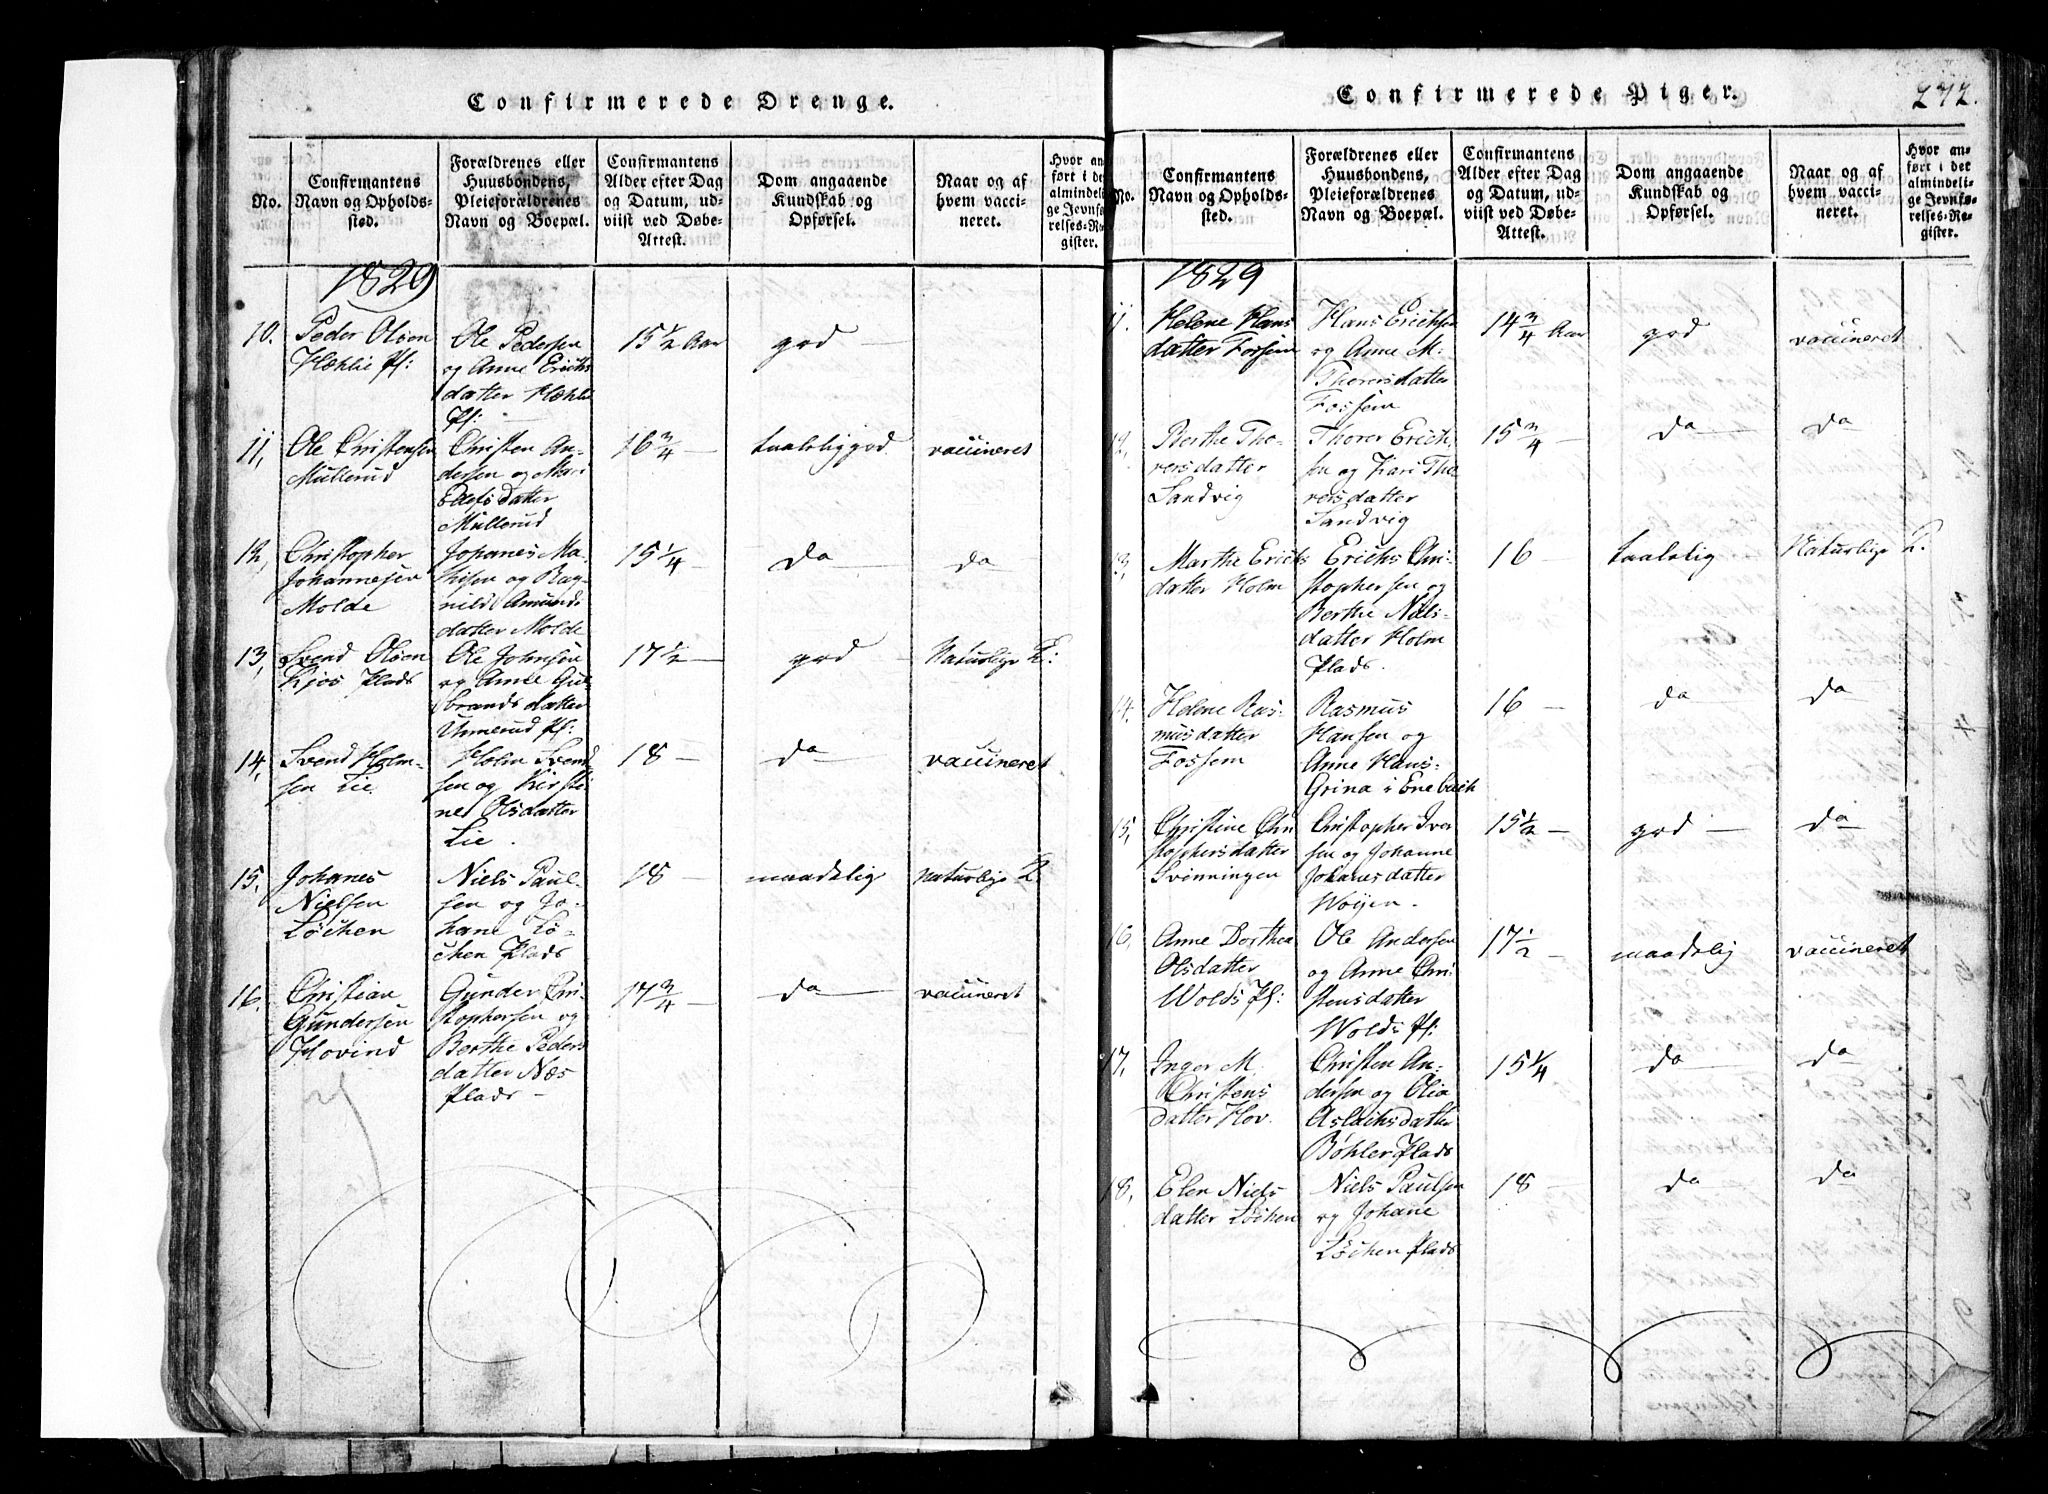 Confirmerede Drenge.
No.
Confirmantens
Navn og Opholds-
sted.
Forældrenes eller
Huusbondens,
Pleieforældrenes
Navn og Boepæl.
Confirmantens
Alder efter Dag
og Datum, ud-
viist ved Døbe-
Attest.
Dom angaaende
Kundskab og
Opførsel.
Naar og af
hvem vacci-
neret.
Hvor an-
ført i det
almindeli-
ge Jevnfø-
relses-Re-
gister.
1829
10.
Peder Olsen
Hæhlie Pl:
Ole Pedersen
og Anne Erichs
datter Hæhlie
Pl:
15 1/2 Aar
god
11,
Ole Christensen
Mullerud
Christen An-
dersen og Mari
datter
Mullerud
16 3/4
taalelig god
vaccineret
12,
Christopher
Johannesen
Molde
Johanes Ma-
thisen og Rag-
nild Amunds
datter Molde
15 1/4
do
do
13,
Svend Olsen
Kjos Plads
Ole Johnsen
og Anne Gul-
brandsdatter
Unnerud Pl:
17 1/2
god
Naturlige K:
14,
Svend Holm-
sen Lie
Holm Svend
sen og Kirsti-
ne Olsdatter
Lie.
18
do
vaccineret
15,
Johanes
Nielsen
Löchen
Niels Paul-
sen og Jo-
hane Lö-
chen Plads
18
maadelig
Naturlige K.
16.
Christian
Gundersen
Hovind
Gunder Chri-
stophersen og
Berthe Peders
datter Næs
Plads
17 3/4
do
vaccineret
Confirmerede Piger.
272.
No.
Confirmantens
Navn og Opholds-
sted.
Forældrenes eller
Huusbondens,
Pleieforældrenes
Navn og Boepæl.
Confirmantens
Alder efter Dag
og Datum, ud-
viist ved Døbe-
Attest.
Dom angaaende
Kundskab og
Opførsel.
Naar og af
hvem vacci-
neret.
Hvor an-
ført i det
almindeli-
ge Jevnfø-
relses-Re-
gister.
1829
11.
Helene Hans
datter Fossem
Hans Erichsen
og Anne M:
Thorersdatter
Fossem
14 3/4 Aar
god
vaccineret
12,
Berthe Tho-
rersdatter
Sandvig
Thorer Erich
sen og Kari Tho-
rersdatter
Sandvig
15 3/4
do
do
13,
Marthe Erichs
datter Holm
Erichs Chri-
stophersen og
Berthe Niels-
datter Holm
Plads.
16
taalelig
Naturlige K.
14.
Helene Ras-
musdatter
Fossem
Rasmus
Hansen og
Anne Hans-
Grina i Enebach
16
do
do
15,
Christine Chri
stophersdatter
Svenningen
Christopher Iver
sen og Johanne
Johanesdatter
Woyen.
15 1/2
god
do
16,
Anne Dorthea
Olsdatter
Wolds Pl:
Ole Andersen
og Anne Chri-
stensdatter
Wolds Pl:
17 1/2
maadelig
vaccineret
17,
Inger M.
Christens
datter Hov.
Christen An-
dersen og Olia
Aslachsdatter
Böhler Plads
15 1/4
do
do
18,
Elen Niels
datter Löchen
Niels Paulsen
og Johane
Löchen Plads
18
do
do